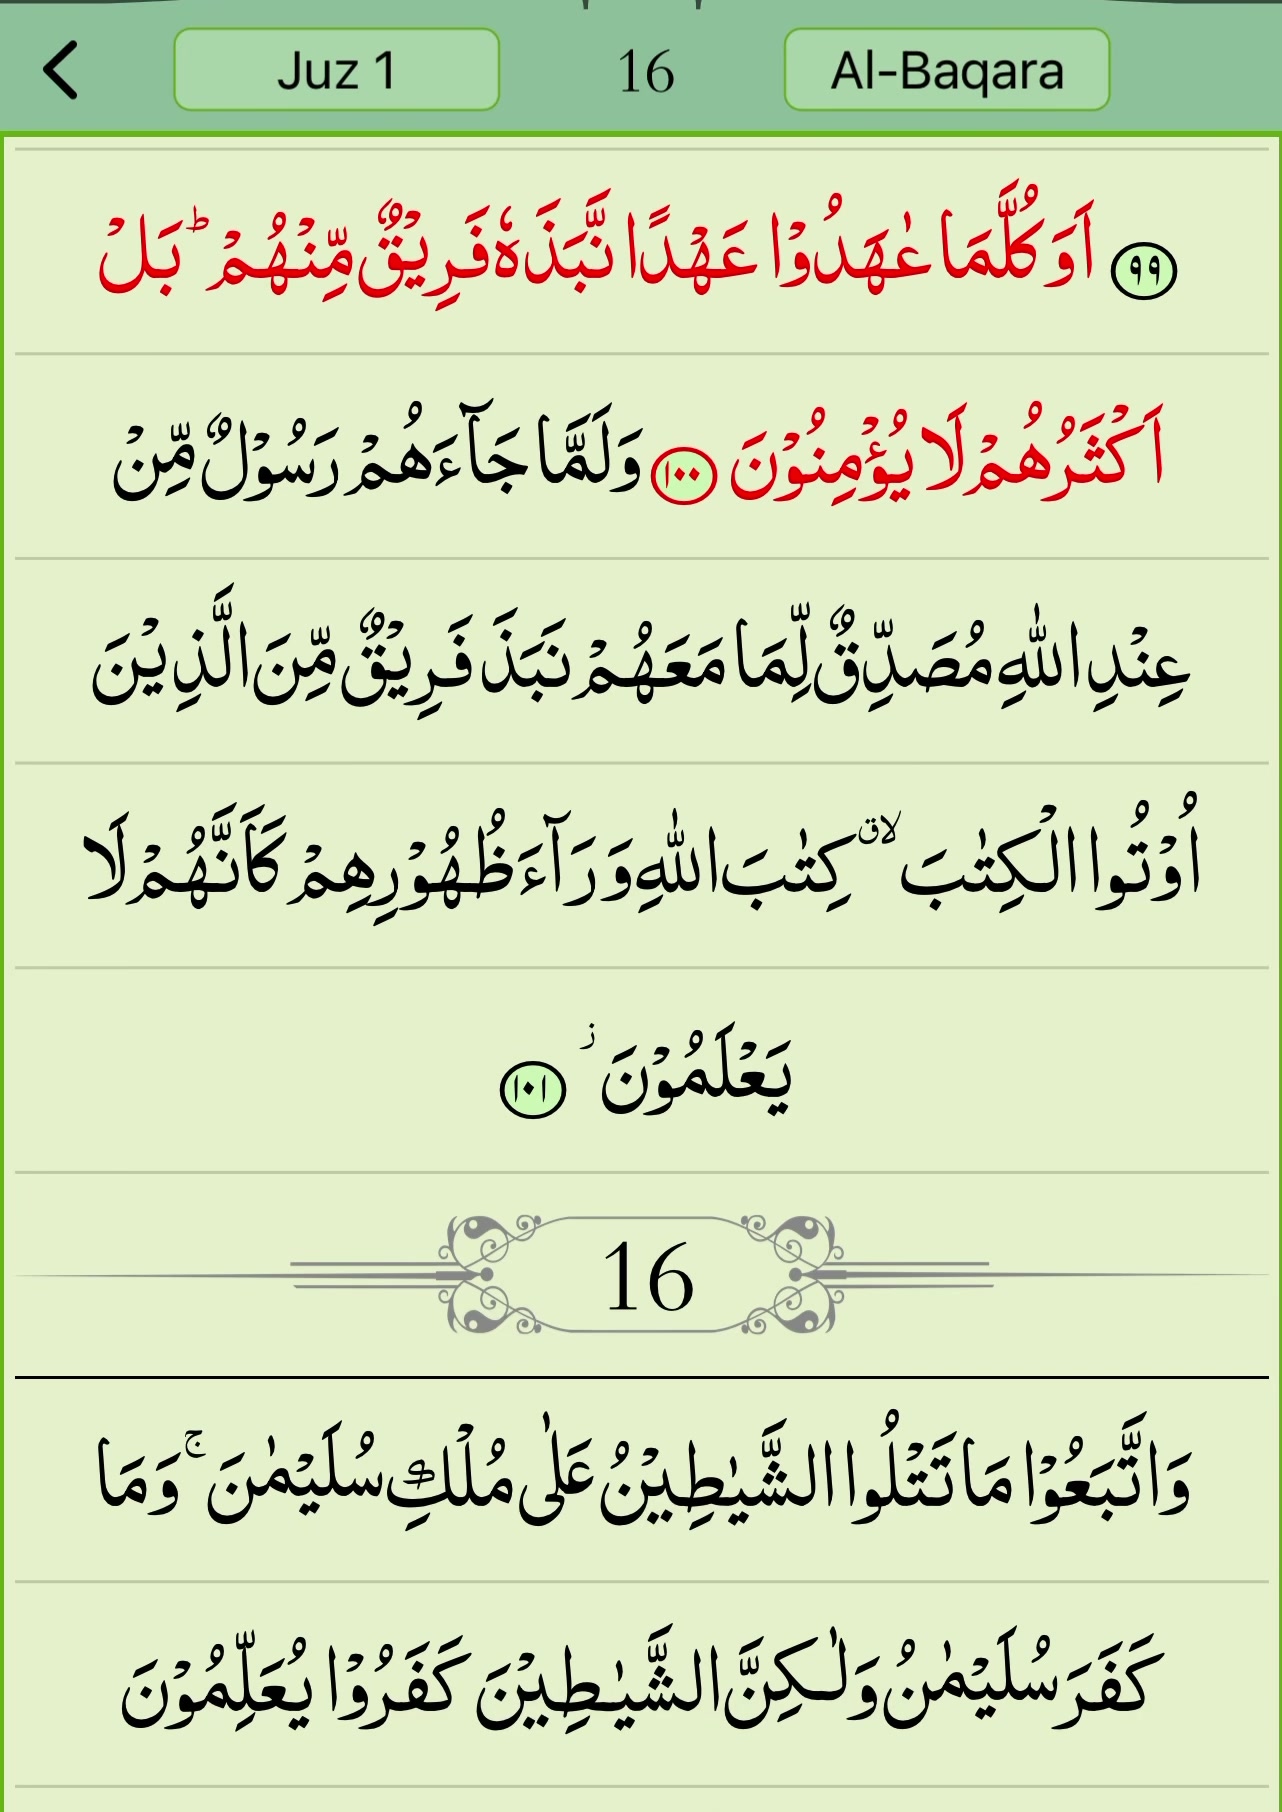 Juz 1 16 Al-Baqara
۹۹ اَوَكُلَّمَا عٰهَدُوْا عَهْدًا نَّبَذَهٗ فَرِيْقٌ مِّنْهُمْ ؕ بَلْ
اَكْثَرُهُمْ لَا يُؤْمِنُوْنَ ۱۰۰ وَلَمَّا جَآءَهُمْ رَسُوْلٌ مِّنْ
عِنْدِ اللّٰهِ مُصَدِّقٌ لِّمَا مَعَهُمْ نَبَذَ فَرِيْقٌ مِّنَ الَّذِيْنَ
اُوْتُوا الْكِتٰبَ ۙق كِتٰبَ اللّٰهِ وَرَآءَ ظُهُوْرِهِمْ كَاَنَّهُمْ لَا
يَعْلَمُوْنَ ز ۱۰۱
16
وَاتَّبَعُوْا مَا تَتْلُوا الشَّيٰطِيْنُ عَلٰى مُلْكِ سُلَيْمٰنَ ۚ وَمَا
كَفَرَ سُلَيْمٰنُ وَلٰـكِنَّ الشَّيٰـطِيْنَ كَفَرُوْا يُعَلِّمُوْنَ